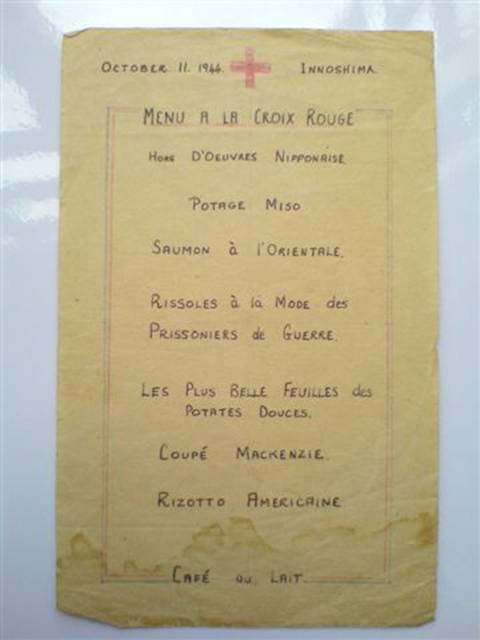 OCTOBER 11. 1944. INNOSHIMA
MENU A LA CROIX ROUGE
HORS D'OEUVRES NIPPONAISE
POTAGE MISO
SAUMON à l'ORIENTALE.
RISSOLES à la MODE des
PRISSONIERS de GUERRE.
LES PLUS BELLE FEUILLES des
POTATES DOUCES.
COUPÉ MACKENZIE.
RIZOTTO AMERICAINE
CAFÉ OU LAIT